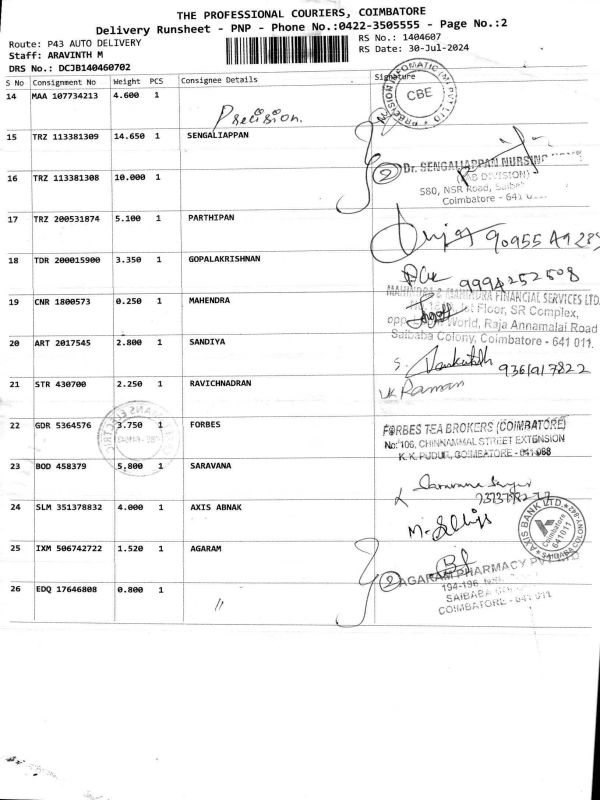 THE PROFESSIONAL COURIERS, COIMBATORE
Delivery Runsheet - PNP - Phone No.:0422-3505555 - Page No.:2
Route: P43 AUTO DELIVERY
RS No.: 1404607
Staff: ARAVINTH M
RS Date: 30-Jul-2024
DRS No.: DCJB140460702
S No Consignment No Weight PCS Consignee Details Signature
14 MAA 107734213 4.600 1 Precision.
CBE
15 TRZ 113381309 14.650 1 SENGALIAPPAN
2 Dr. SENGALIAPPAN NURSING
(LAB DIVISION)
16 TRZ 113381308 10.000 1
580, NSR Road,
Coimbatore - 641
17 TRZ 200531874 5.100 1 PARTHIPAN
18 TDR 200015900 3.350 1 GOPALAKRISHNAN
9994252508
19 CNR 1800573 0.250 1 MAHENDRA
MAHINDRA & MAHINDRA FINANCIAL SERVICES LTD.
1st Floor, SR Complex,
World, Raja Annamalai Road
Saibaba Colony, Coimbatore - 641 011.
20 ART 2017545 2.800 1 SANDIYA
S. Venkatesh 9361917822
21 STR 430700 2.250 1 RAVICHNADRAN
VK Raman
22 GDR 5364576 3.750 1 FORBES
FORBES TEA BROKERS (COIMBATORE)
No:106, CHINNAMMAL STREET EXTENSION
K.K. PUDUR, COIMBATORE - 641 038
23 BOD 458379 5.800 1 SARAVANA
24 SLM 351378832 4.000 1 AXIS ABNAK
AXIS BANK LTD.
Coimbatore
641011
SAIBABA COLONY
25 IXM 506742722 1.520 1 AGARAM
2 AGARAM PHARMACY PVT LTD
194-196,
SAIBABA
COIMBATORE - 641 011
26 EDQ 17646808 0.800 1 〃